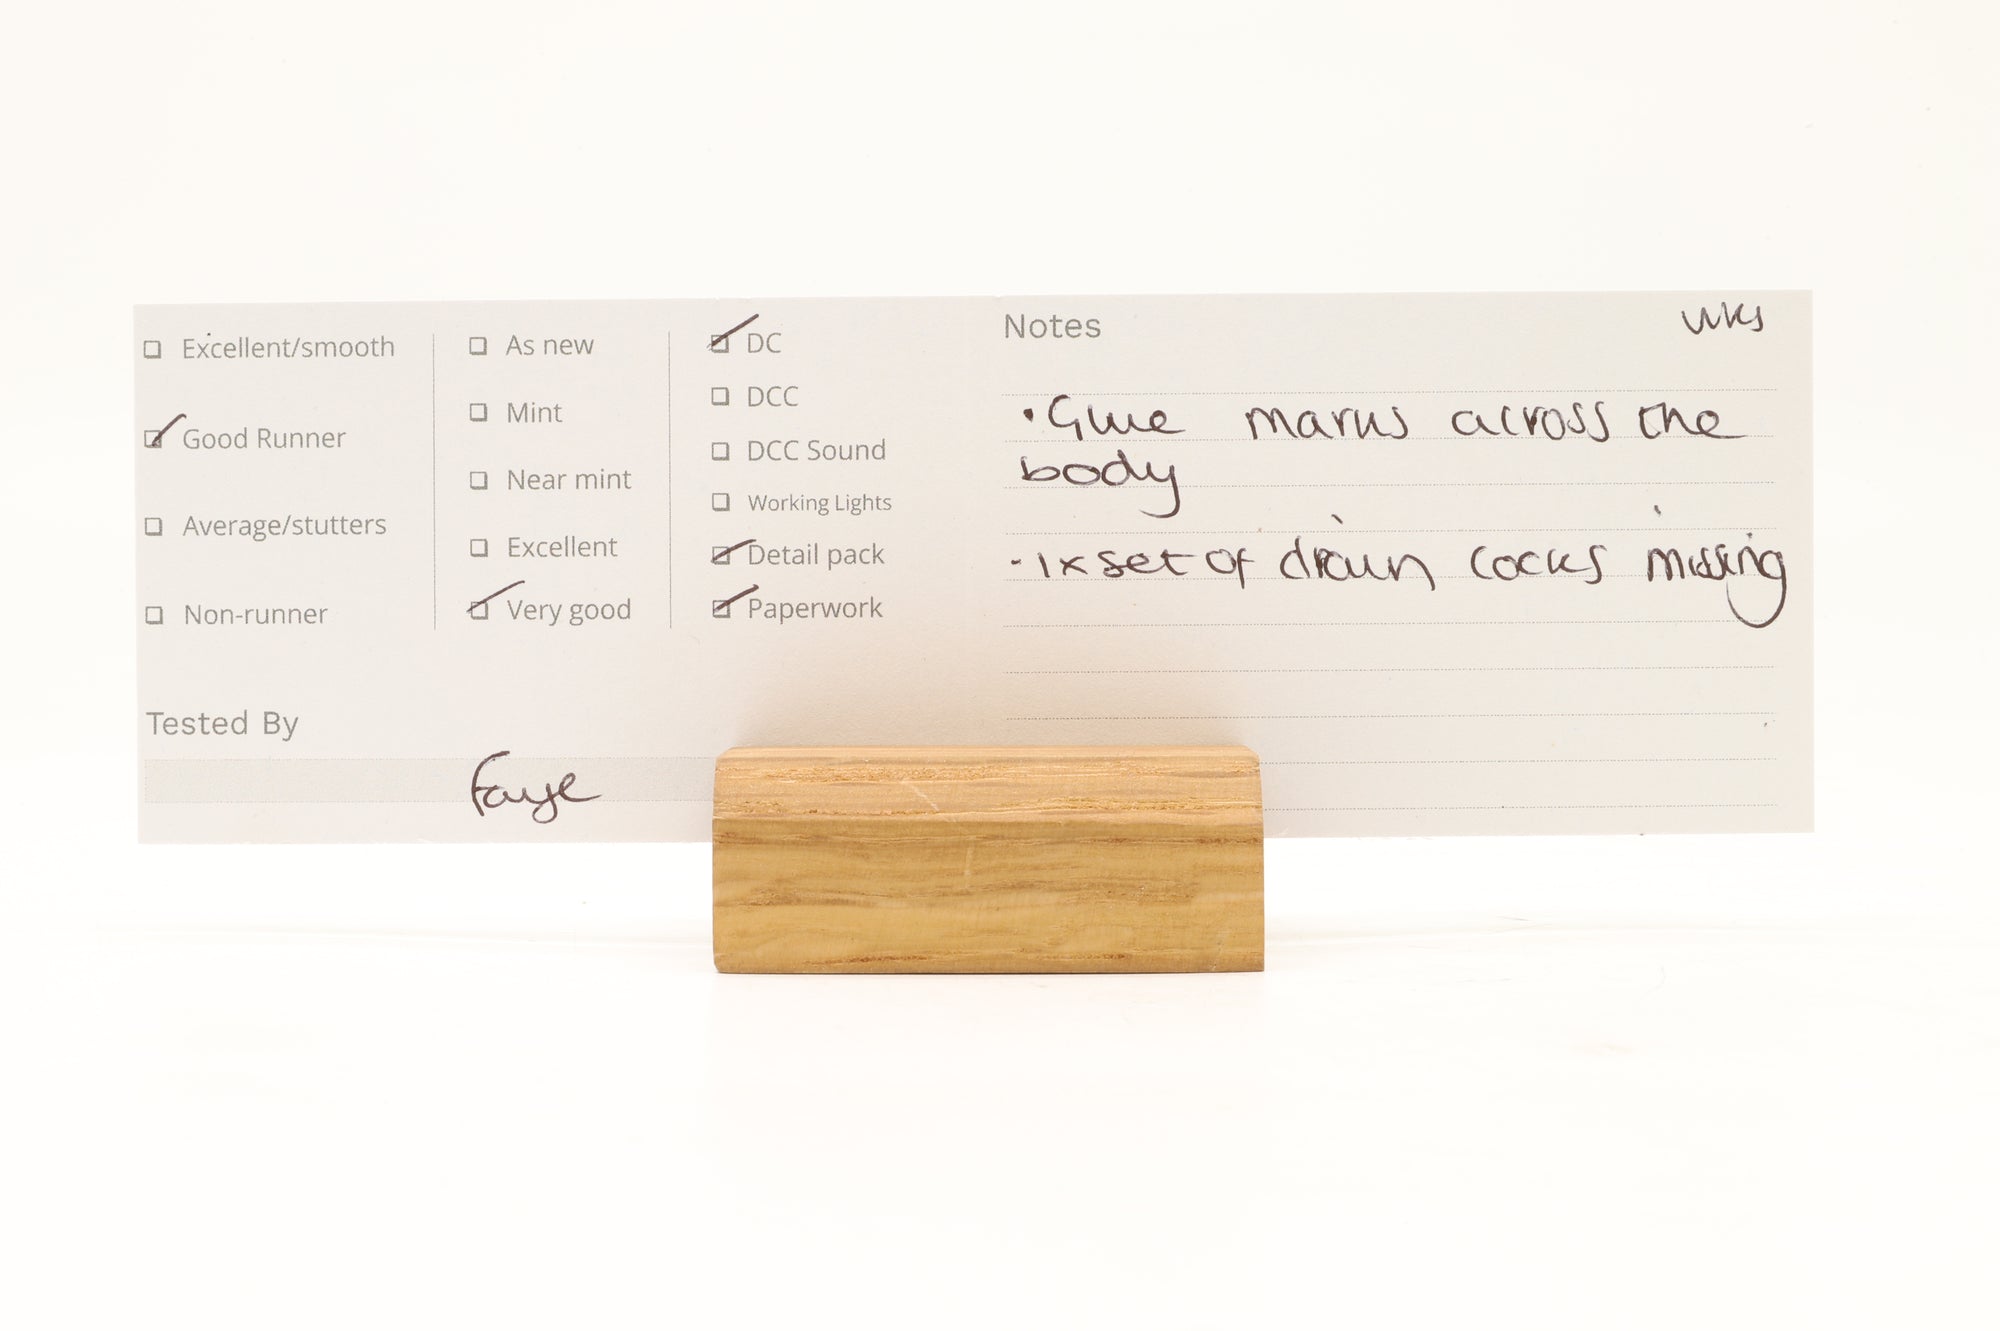 ☐ Excellent/smooth
☑ Good Runner
☐ Average/stutters
☐ Non-runner
☐ As new
☐ Mint
☐ Near mint
☐ Excellent
☑ Very good
☑ DC
☐ DCC
☐ DCC Sound
☐ Working Lights
☑ Detail pack
☑ Paperwork
Tested By
Faye
Notes
• Glue marks across the
body
- 1x set of drain cocks missing